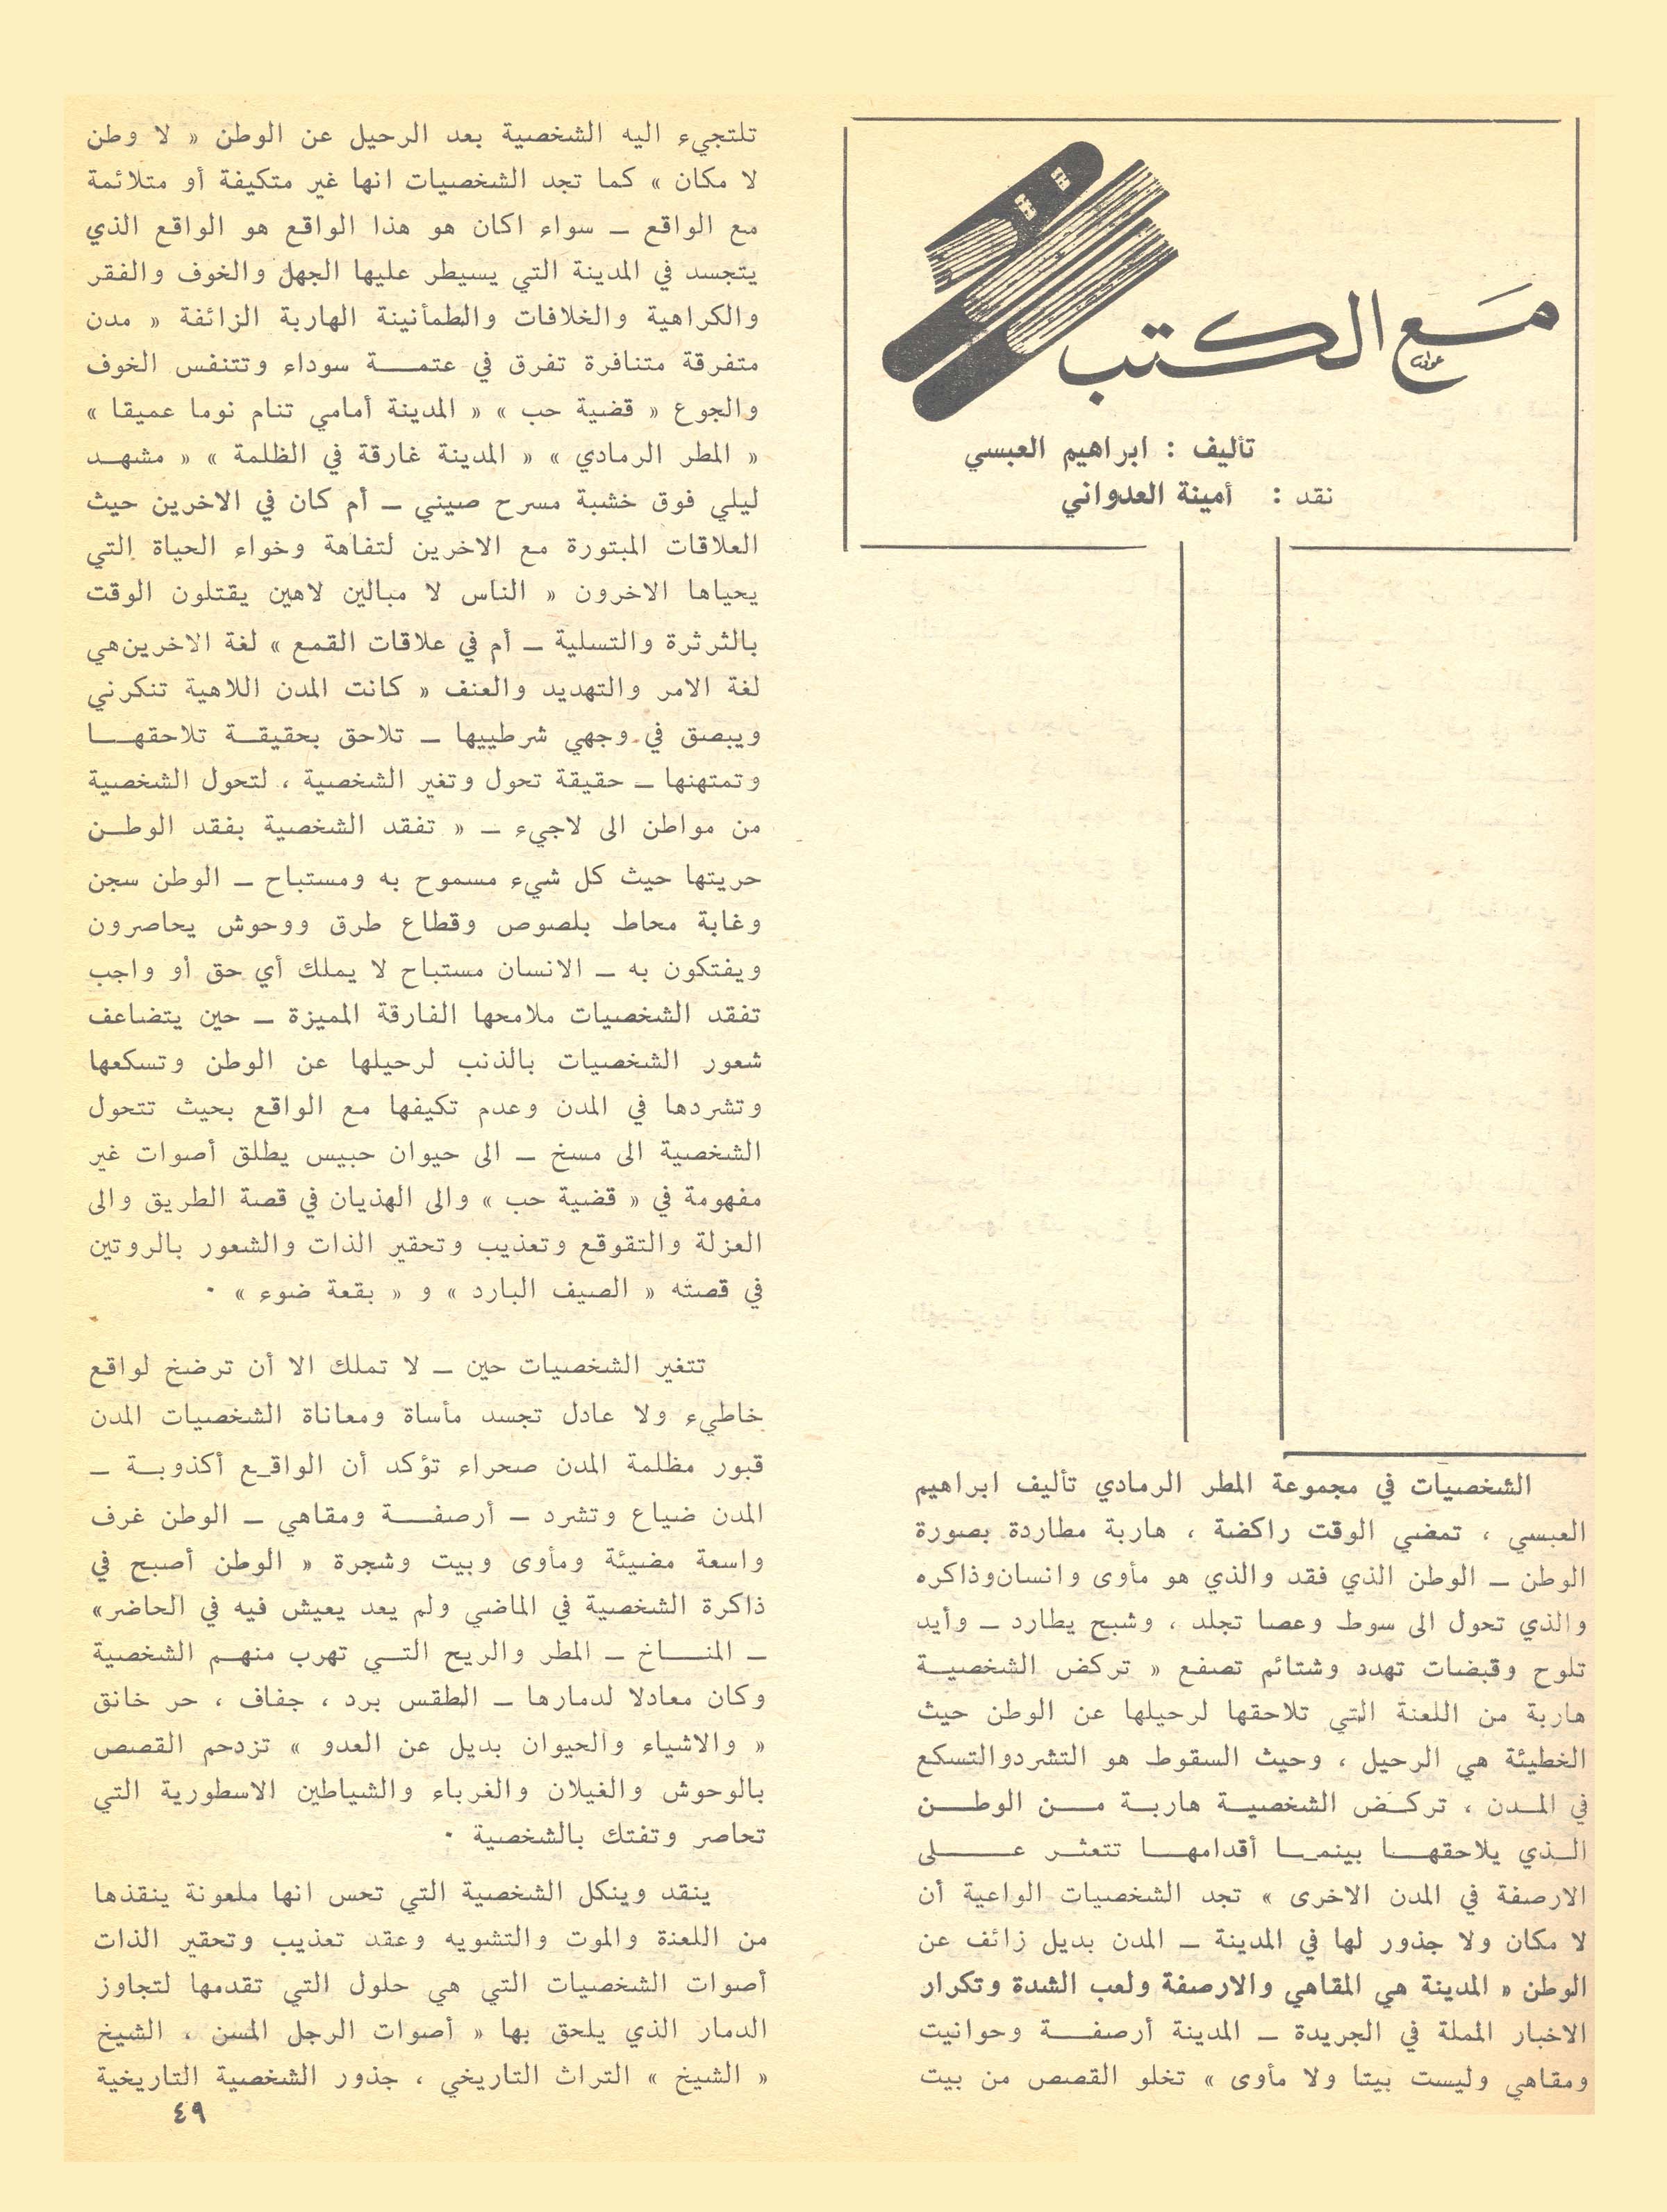 مع الكتب
تأليف : ابراهيم العبسي
نقد : أمينة العدواني
الشخصيات في مجموعة المطر الرمادي تأليف ابراهيم
العبسي ، تمضي الوقت راكضة ، هاربة مطاردة بصورة
الوطن ــ الوطن الذي فقد والذي هو مأوى وانسان وذاكره
والذي تحول الى سوط وعصا تجلد ، وشبح يطارد ــ وأيد
تلوح وقبضات تهدد وشتائم تصفع « تركض الشخصيـة
هاربة من اللعنة التي تلاحقها لرحيلها عن الوطن حيث
الخطيئة هي الرحيل ، وحيث السقوط هو التشرد والتسكع
في المـدن ، تركـض الشخصيـة هاربـة مـن الوطـن
الـذي يلاحقهـا بينمـا أقدامهـا تتعثـر عـلى
الارصفة في المدن الاخرى » تجد الشخصيات الواعية أن
لا مكان ولا جذور لها في المدينة ــ المدن بديل زائف عن
الوطن « المدينة هي المقاهي والارصفة ولعب الشدة وتكرار
الاخبار المملة في الجريدة ــ المدينة أرصفـة وحوانيت
ومقاهي وليست بيتا ولا مأوى » تخلو القصص من بيت
تلتجيء اليه الشخصية بعد الرحيل عن الوطن « لا وطن
لا مكان » كما تجد الشخصيات انها غير متكيفة أو متلائمة
مع الواقع ــ سواء اكان هو هذا الواقع هو الواقع الذي
يتجسد في المدينة التي يسيطر عليها الجهل والخوف والفقر
والكراهية والخلافات والطمأنينة الهاربة الزائفة « مدن
متفرقة متنافرة تفرق في عتمـة سوداء وتتنفس الخوف
والجوع « قضية حب » « المدينة أمامي تنام نوما عميقا »
« المطر الرمادي » « المدينة غارقة في الظلمة » « مشهـد
ليلي فوق خشبة مسرح صيني ــ أم كان في الاخرين حيث
العلاقات المبتورة مع الاخرين لتفاهة وخواء الحياة التي
يحياها الاخرون « الناس لا مبالين لاهين يقتلون الوقت
بالثرثرة والتسلية ــ أم في علاقات القمع » لغة الاخرين هي
لغة الامر والتهديد والعنف « كانت المدن اللاهية تنكرني
ويبصق في وجهي شرطييها ــ تلاحق بحقيقـة تلاحقهـا
وتمتهنها ــ حقيقة تحول وتغير الشخصية ، لتحول الشخصية
من مواطن الى لاجيء ــ « تفقد الشخصية بفقد الوطـن
حريتها حيث كل شيء مسموح به ومستباح ــ الوطن سجن
وغابة محاط بلصوص وقطاع طرق ووحوش يحاصرون
ويفتكون به ــ الانسان مستباح لا يملك أي حق أو واجب
تفقد الشخصيات ملامحها الفارقة المميزة ــ حين يتضاعف
شعور الشخصيات بالذنب لرحيلها عن الوطن وتسكعها
وتشردها في المدن وعدم تكيفها مع الواقع بحيث تتحول
الشخصية الى مسخ ــ الى حيوان حبيس يطلق أصوات غير
مفهومة في « قضية حب » والى الهذيان في قصة الطريق والى
العزلة والتقوقع وتعذيب وتحقير الذات والشعور بالروتين
في قصته « الصيف البارد » و « بقعة ضوء » ٠
تتغير الشخصيات حين ــ لا تملك الا أن ترضخ لواقع
خاطيء ولا عادل تجسد مأساة ومعاناة الشخصيات المدن
قبور مظلمة المدن صحراء تؤكد أن الواقـع أكذوبـة ــ
المدن ضياع وتشرد ــ أرصفـة ومقاهي ــ الوطن غرف
واسعة مضيئة ومأوى وبيت وشجرة « الوطن أصبح في
ذاكرة الشخصية في الماضي ولم يعد يعيش فيه في الحاضر »
ــ المنـاخ ــ المطر والريح التـي تهرب منهـم الشخصية
وكان معادلا لدمارها ــ الطقس برد ، جفاف ، حر خانق
« والاشياء والحيوان بديل عن العدو » تزدحم القصص
بالوحوش والغيلان والغرباء والشياطين الاسطورية التي
تحاصر وتفتك بالشخصية ٠
ينقد وينكل الشخصية التي تحس انها ملعونة ينقذها
من اللعنة والموت والتشويه وعقد تعذيب وتحقير الذات
أصوات الشخصيات التي هي حلول التي تقدمها لتجاوز
الدمار الذي يلحق بها « أصوات الرجل المسن ، الشيخ
« الشيخ » التراث التاريخي ، جذور الشخصية التاريخية
٤٩